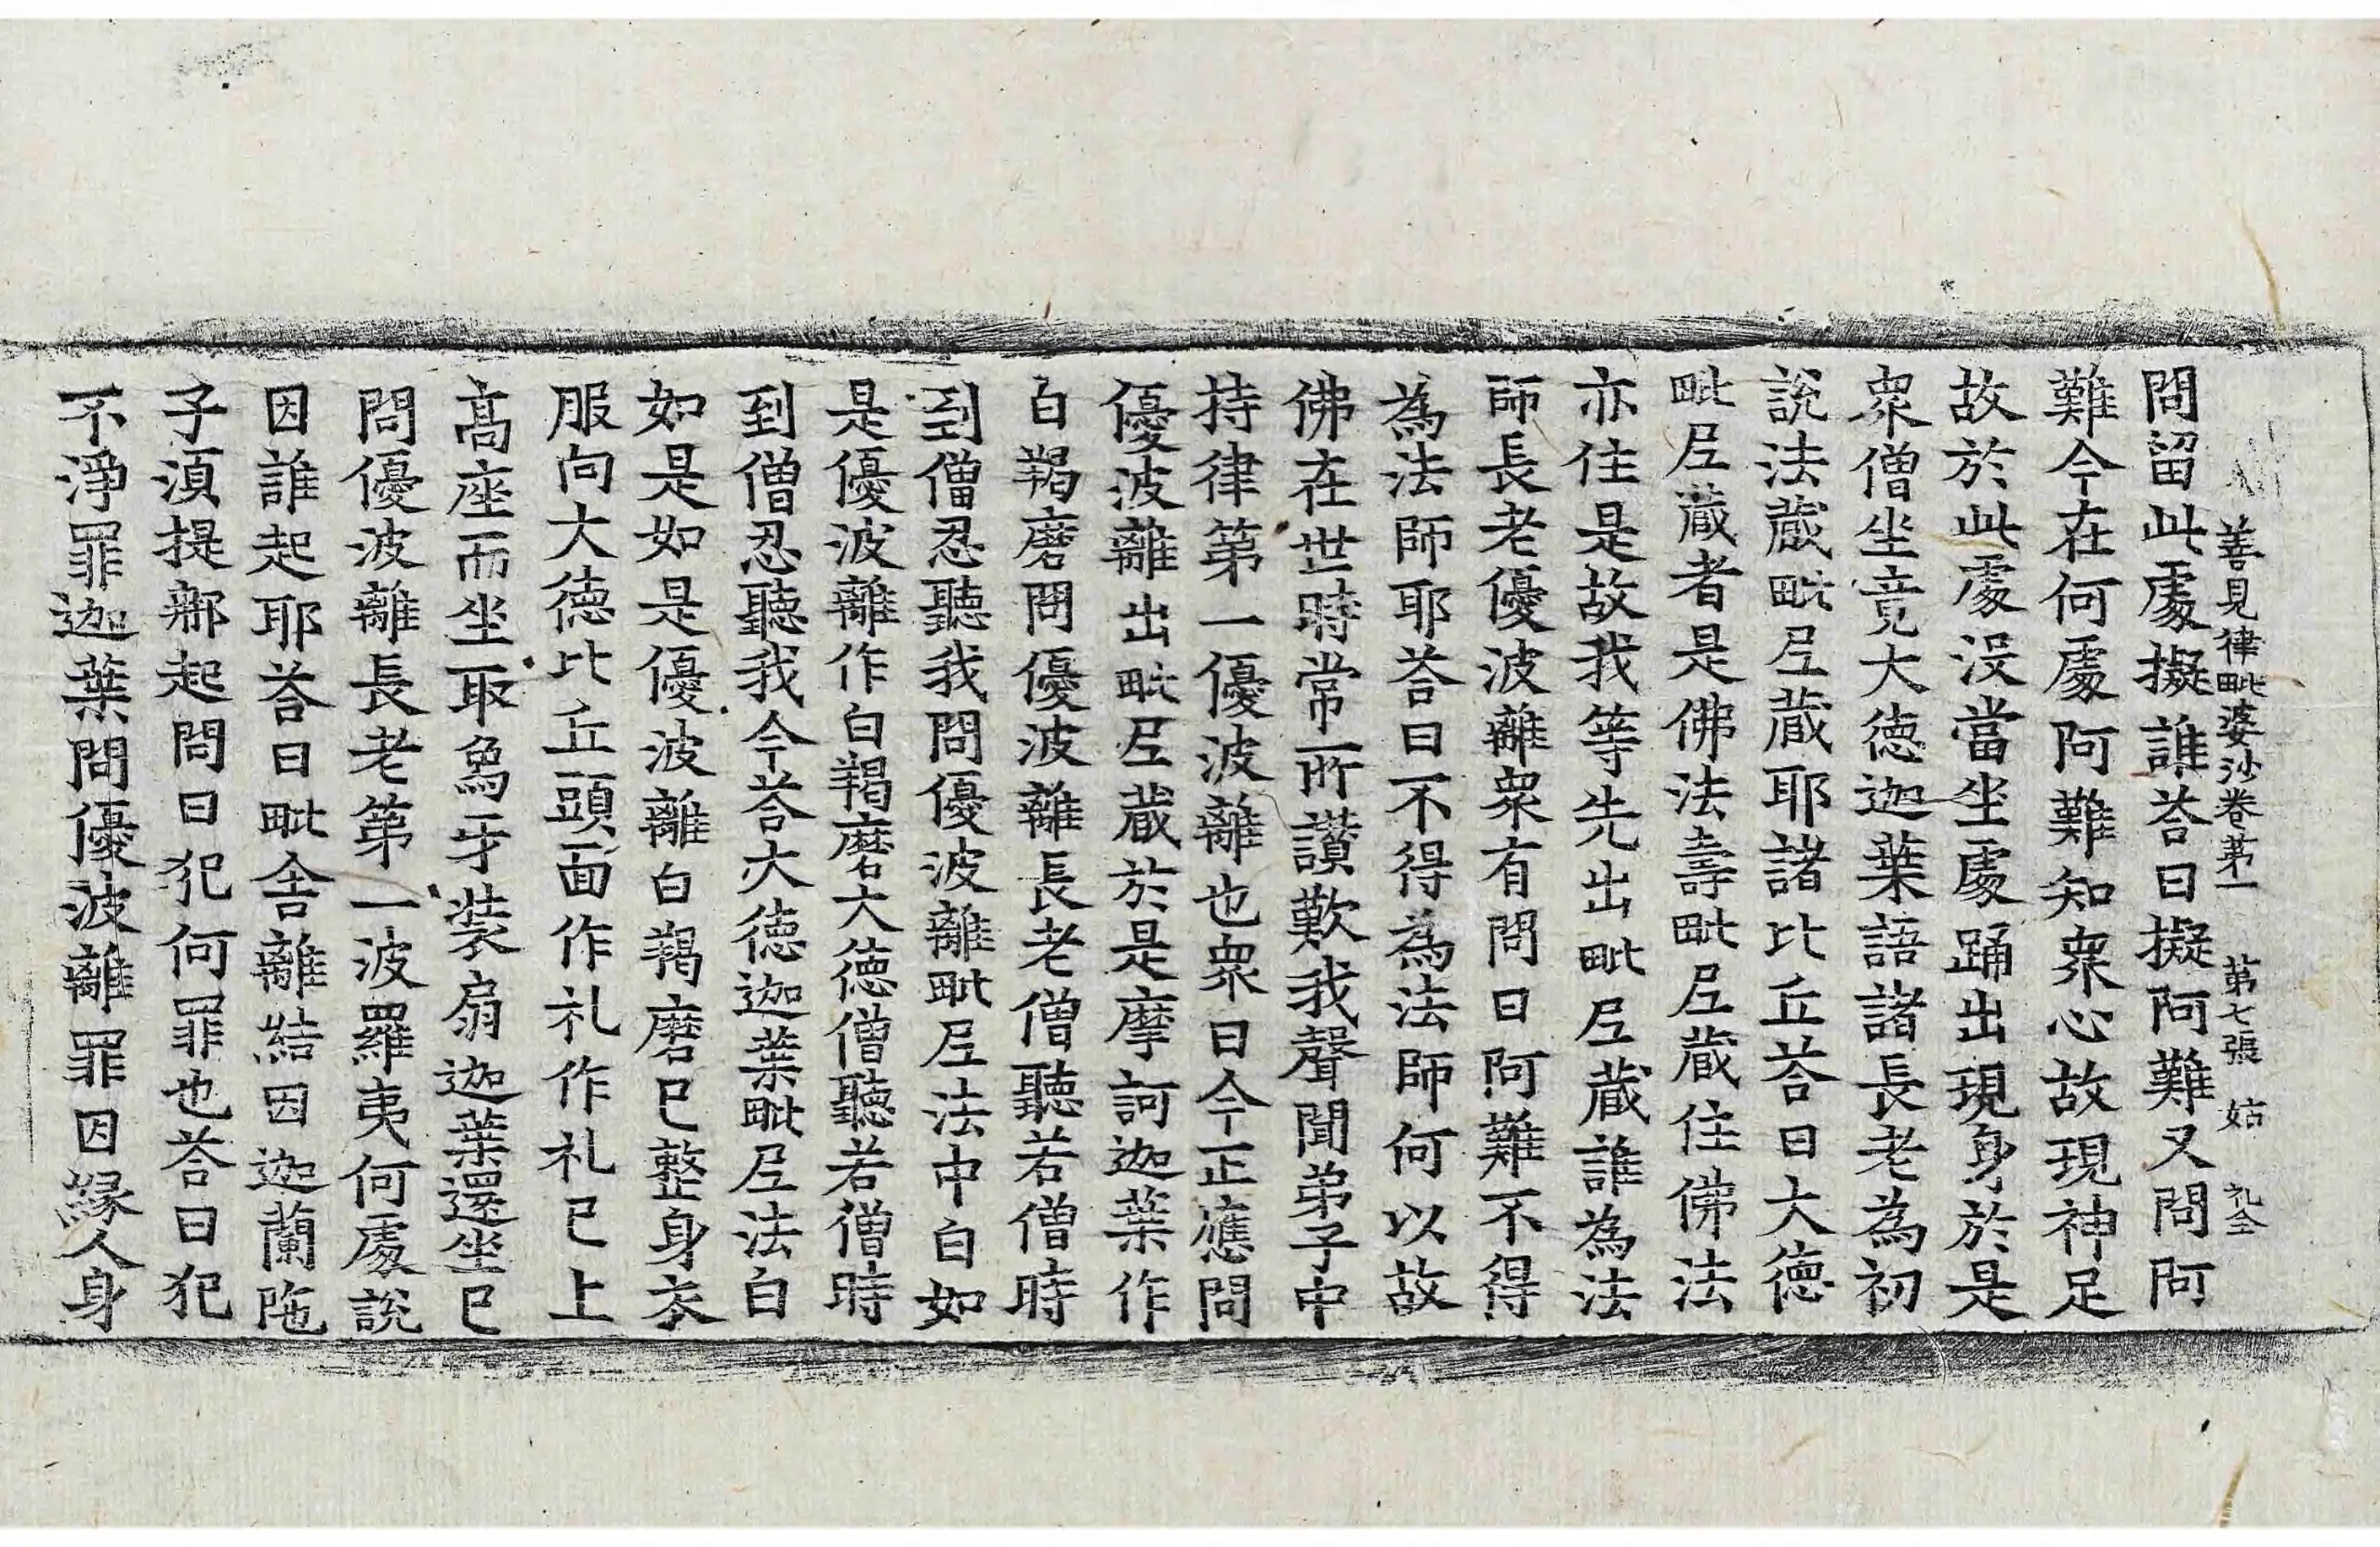 善見律毗婆沙卷第一　第七張　姑　礼全
問留此處擬誰荅曰擬阿難又問阿
難今在何處阿難知衆心故現神足
故於此處没當坐處踊出現身於是
衆僧坐竟大德迦葉語諸長老為初
說法藏毗𡰱藏耶諸比丘荅曰大德
毗𡰱藏者是佛法壽毗𡰱藏住佛法
亦住是故我等先出毗𡰱藏誰為法
師長老優波離衆有問曰阿難不得
為法師耶荅曰不得為法師何以故
佛在世時常所讃歎我聲聞弟子中
持律第一優波離也衆曰今正應問
優波離出毗𡰱藏於是摩訶迦葉作
白羯磨問優波離長老僧聽若僧時
到僧忍聽我問優波離毗𡰱法中白如
是優波離作白羯磨大德僧聽若僧時
到僧忍聽我今荅大德迦葉毗𡰱法白
如是如是優波離白羯磨已整身衣
服向大德比丘頭面作礼作礼已上
高座而坐取象牙裝扇迦葉還坐已
問優波離長老第一波羅夷何處說
因誰起耶荅曰毗舍離結因迦蘭陁
子湏提那起問曰犯何罪也荅曰犯
不淨罪迦葉問優波離罪因縁人身